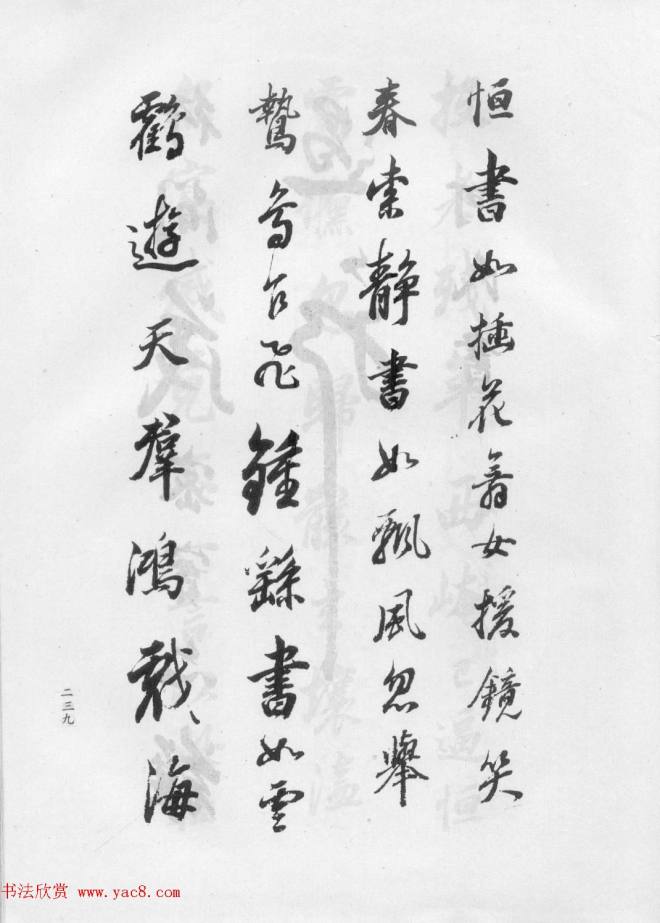 恒書如插花舞女援鏡笑
春索靜書如飄風忽舉
鷙鳥乍飛鍾繇書如雲
鶴遊天羣鴻戲海
二三九
书法欣赏 www.yac8.com